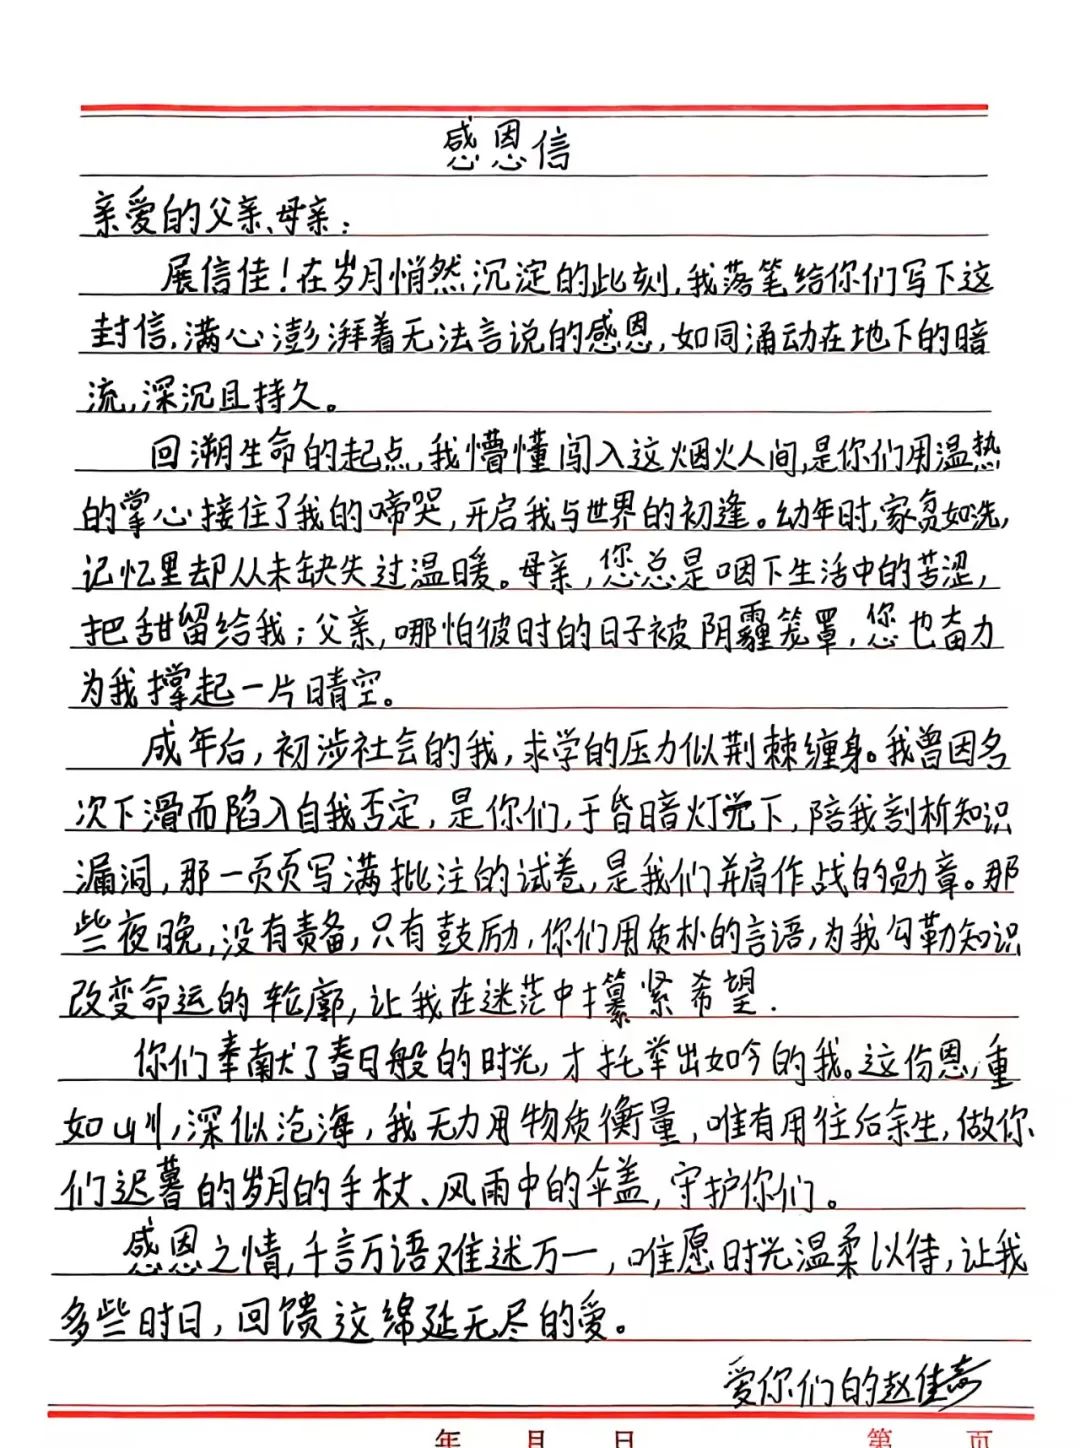 感恩信
亲爱的父亲、母亲：
展信佳！在岁月悄然沉淀的此刻，我落笔给你们写下这
封信，满心澎湃着无法言说的感恩，如同涌动在地下的暗
流，深沉且持久。
回溯生命的起点，我懵懂闯入这烟火人间，是你们用温热
的掌心接住了我的啼哭，开启我与世界的初逢。幼年时，家贫如洗，
记忆里却从未缺失过温暖。母亲，您总是咽下生活中的苦涩，
把甜留给我；父亲，哪怕彼时的日子被阴霾笼罩，您也奋力
为我撑起一片晴空。
成年后，初涉社会的我，求学的压力似荆棘缠身。我曾因名
次下滑而陷入自我否定，是你们，于昏暗灯光下，陪我剖析知识
漏洞，那一页页写满批注的试卷，是我们并肩作战的勋章。那
些夜晚，没有责备，只有鼓励，你们用质朴的言语，为我勾勒知识
改变命运的轮廓，让我在迷茫中攥紧希望.
你们奉献了春日般的时光，才托举出如今的我。这份恩，重
如山川，深似沧海，我无力用物质衡量，唯有用往后余生，做你
们迟暮的岁月的手杖、风雨中的伞盖，守护你们。
感恩之情，千言万语难述万一，唯愿时光温柔以待，让我
多些时日，回馈这绵延无尽的爱。
爱你们的赵佳
年 月 日 第 页